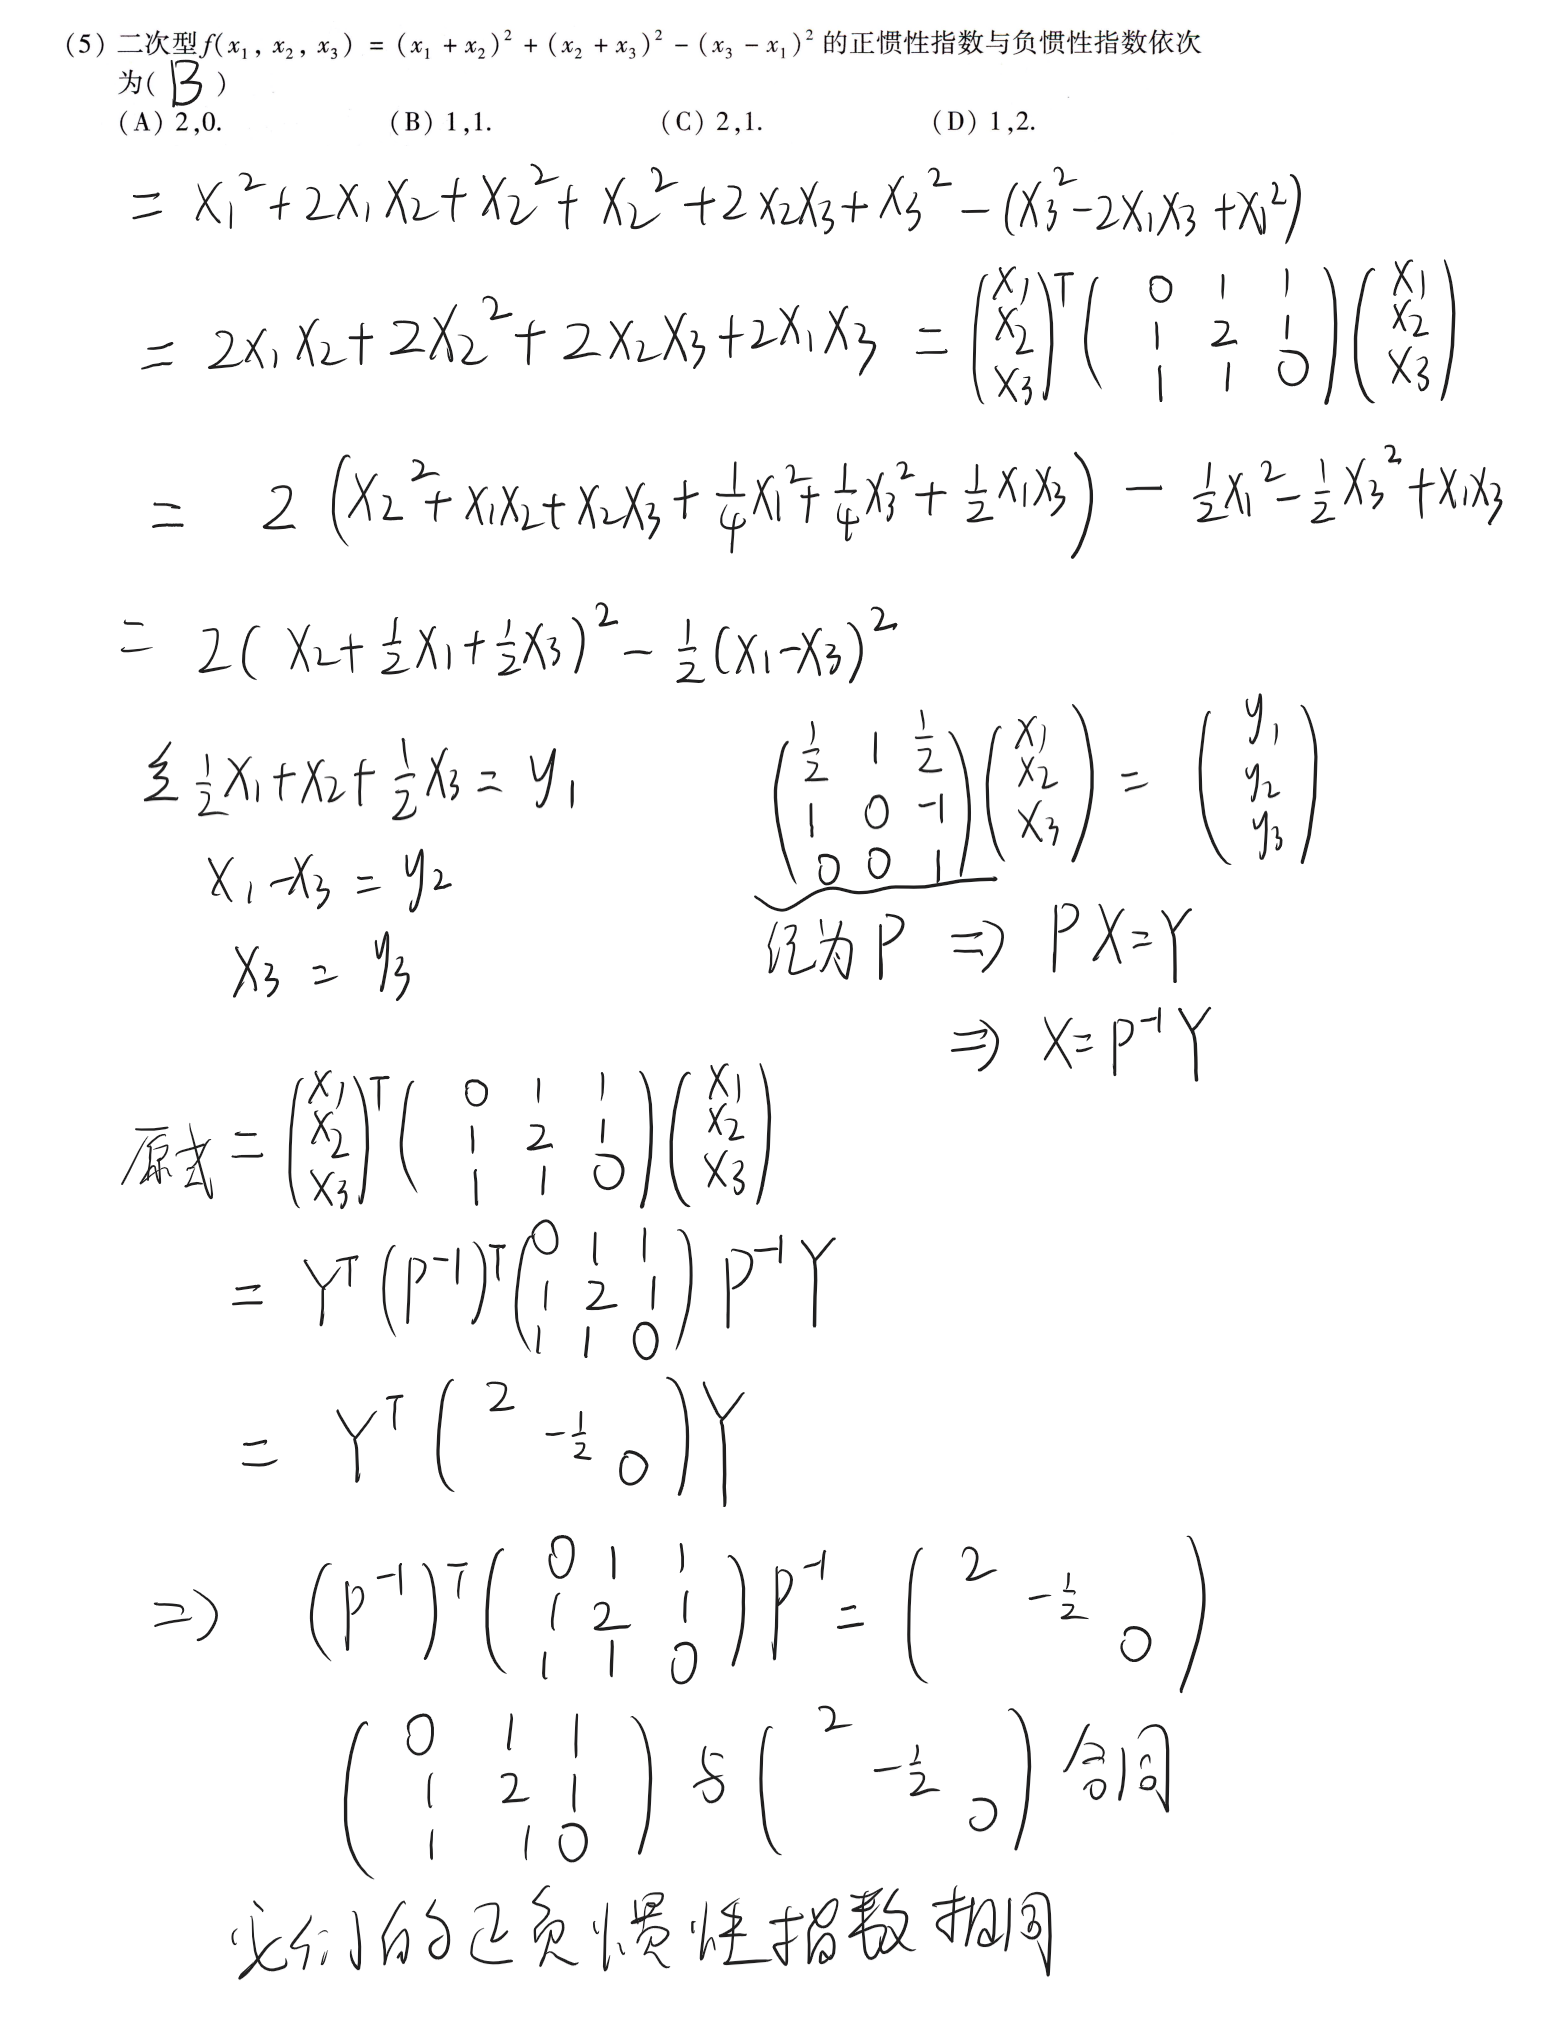 (5) 二次型 f(x₁, x₂, x₃) = (x₁ + x₂)² + (x₂ + x₃)² − (x₃ − x₁)² 的正惯性指数与负惯性指数依次
为( B )
(A) 2,0. (B) 1,1. (C) 2,1. (D) 1,2.
= x₁² + 2x₁x₂ + x₂² + x₂² + 2x₂x₃ + x₃² − (x₃² − 2x₁x₃ + x₁²)
= 2x₁x₂ + 2x₂² + 2x₂x₃ + 2x₁x₃ = (x₁ x₂ x₃)ᵀ (0 1 1; 1 2 1; 1 1 0) (x₁; x₂; x₃)
= 2 (x₂² + x₁x₂ + x₂x₃ + ¼x₁² + ¼x₃² + ½x₁x₃) − ½x₁² − ½x₃² + x₁x₃
= 2( x₂ + ½x₁ + ½x₃)² − ½(x₁−x₃)²
令 ½x₁ + x₂ + ½x₃ = y₁
x₁−x₃ = y₂
x₃ = y₃
(½ 1 ½; 1 0 −1; 0 0 1) (x₁; x₂; x₃) = (y₁; y₂; y₃)
记为P ⇒ PX=Y
⇒ X=P⁻¹Y
原式 = (x₁; x₂; x₃)ᵀ (0 1 1; 1 2 1; 1 1 0) (x₁; x₂; x₃)
= Yᵀ (P⁻¹)ᵀ (0 1 1; 1 2 1; 1 1 0) P⁻¹Y
= Yᵀ (2 −½ 0) Y
⇒ (P⁻¹)ᵀ (0 1 1; 1 2 1; 1 1 0) P⁻¹ = (2 −½ 0)
(0 1 1; 1 2 1; 1 1 0) 与 (2 −½ 0) 合同
它们的正负惯性指数相同